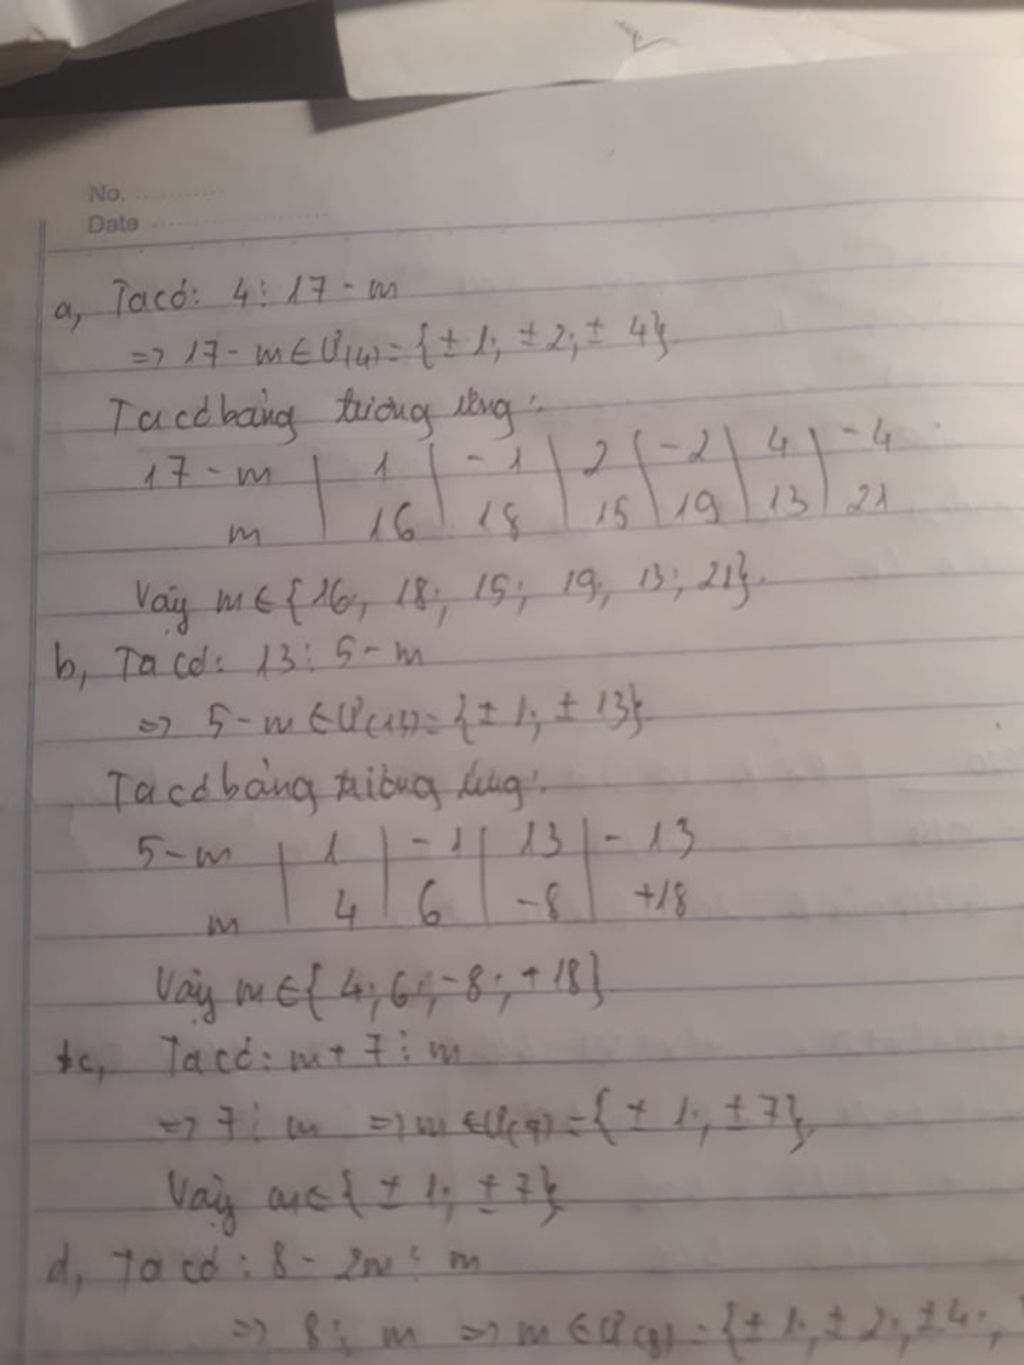 No.
Date
a, Ta có: 4 ⋮ 17 - m
=> 17 - m ∈ Ư(4) = {± 1; ± 2; ± 4}.
Ta có bảng tương ứng:
17 - m | 1 | - 1 | 2 | - 2 | 4 | - 4
m | 16 | 18 | 15 | 19 | 13 | 21
Vậy m ∈ {16; 18; 15; 19; 13; 21}.
b, Ta có: 13 ⋮ 5 - m
=> 5 - m ∈ Ư(13) = {± 1; ± 13}.
Ta có bảng tương ứng:
5 - m | 1 | - 1 | 13 | - 13
m | 4 | 6 | -8 | +18
Vậy m ∈ { 4; 6; -8; + 18}.
c, Ta có: m + 7 ⋮ m
=> 7 ⋮ m => m ∈ Ư(7) = {± 1; ± 7}.
Vậy m ∈ { ± 1; ± 7}
d, Ta có: 8 - 2m ⋮ m
=> 8 ⋮ m => m ∈ Ư(8) = {± 1; ± 2; ± 4;